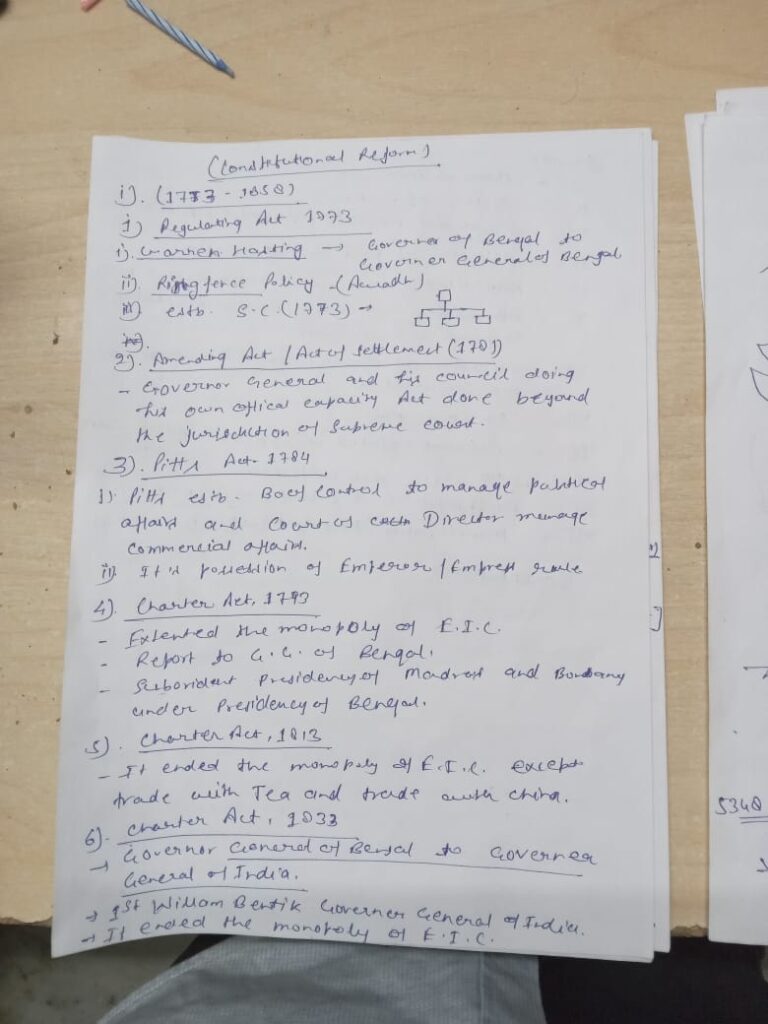 (Constitutional Reform)
i). (1773 - 1858)
1) Regulating Act 1773
i). Warren Hasting → Governer of Bengal to
Governer General of Bengal
ii). Ring fence Policy - (Awadh)
iii) estb. S.C. (1773) →
iv).
2). Amending Act / Act of Settlement (1781)
- Governor General and his council doing
his own offical capacity Act done beyand
the jurisdiction of Supreme court.
3). Pitts Act - 1784
i) Pitts estb. Bo of Control to manage political
affairs and Court of Director manage
commercial affairs.
ii) It's possession of Emperor / Empress
4). Charter Act, 1793
- Extented the monopoly of E.I.C.
- Report to G.G. of Bengal.
- Subordient Presidency of Madras and Bombany
under Presidency of Bengal.
5). Charter Act, 1813
- It ended the monopoly of E.I.C. except
trade with Tea and trade with china.
6). Charter Act, 1833
→ Governor General of Bengal to Governer
General of India.
→ 1st Willam Bentik Governer General of India.
→ It ended the monopoly of E.I.C.
5348